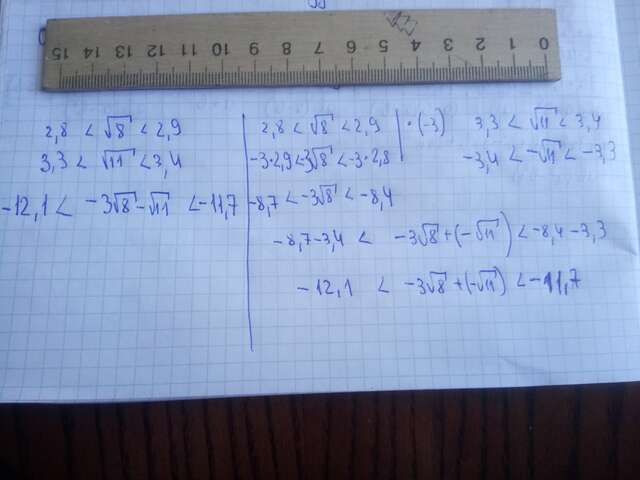 2,8 < √8 < 2,9
3,3 < √11 < 3,4
-12,1 < -3√8 - √11 < -11,7
2,8 < √8 < 2,9 | ·(-3)
-3·2,9 < 3√8 < -3·2,8
-8,7 < -3√8 < -8,4
3,3 < √11 < 3,4
-3,4 < -√11 < -3,3
-8,7-3,4 < -3√8 + (-√11) < -8,4-3,3
-12,1 < -3√8 + (-√11) < -11,7
0 1 2 3 4 5 6 7 8 9 10 11 12 13 14 15